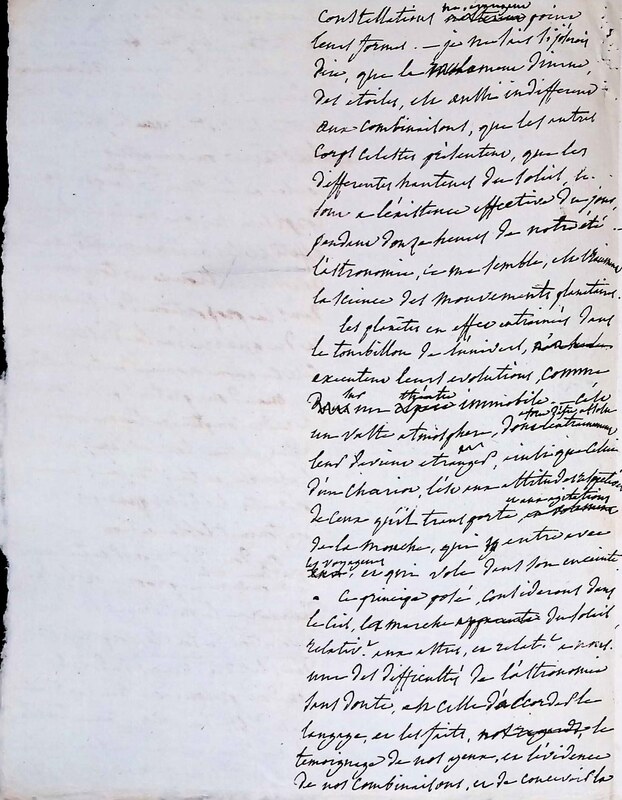 constellations
leurs formes. — je ne sais si j'oserais
dire, que le
des étoiles, est aussi indifférent
aux combinaisons, que les autres
corps celestes présentent, que les
differentes hauteurs du soleil, le
sont a l'existence effective du jour,
pendant douze heures de notre été —
l'astronomie, ce me semble, est
la science des mouvements planétaires.
les planètes en effet entrainées dans
le tourbillon de l'univers,
executent leurs evolutions, comme
un théatre immobile. —
une vaste atmosphere, dont
leur devient etranger, ainsi que celui
d'un chariot, l'est aux attitudes
de ceux qu'il transporte et aux agitations
de la mouche, qui y entre avec
les voyageurs, et qui vole dans son enceinte
ce principe posé, considerons dans
le ciel, la marche apparente du soleil
relativt. aux astres, et relatt. a nous.
une des difficultés de l'astronomie
sans doute, est celle d'accorder le
langage, et les faits, nos regards, le
temoignage de nos yeux, et l'évidence
de nos combinaisons, et de concevoir la